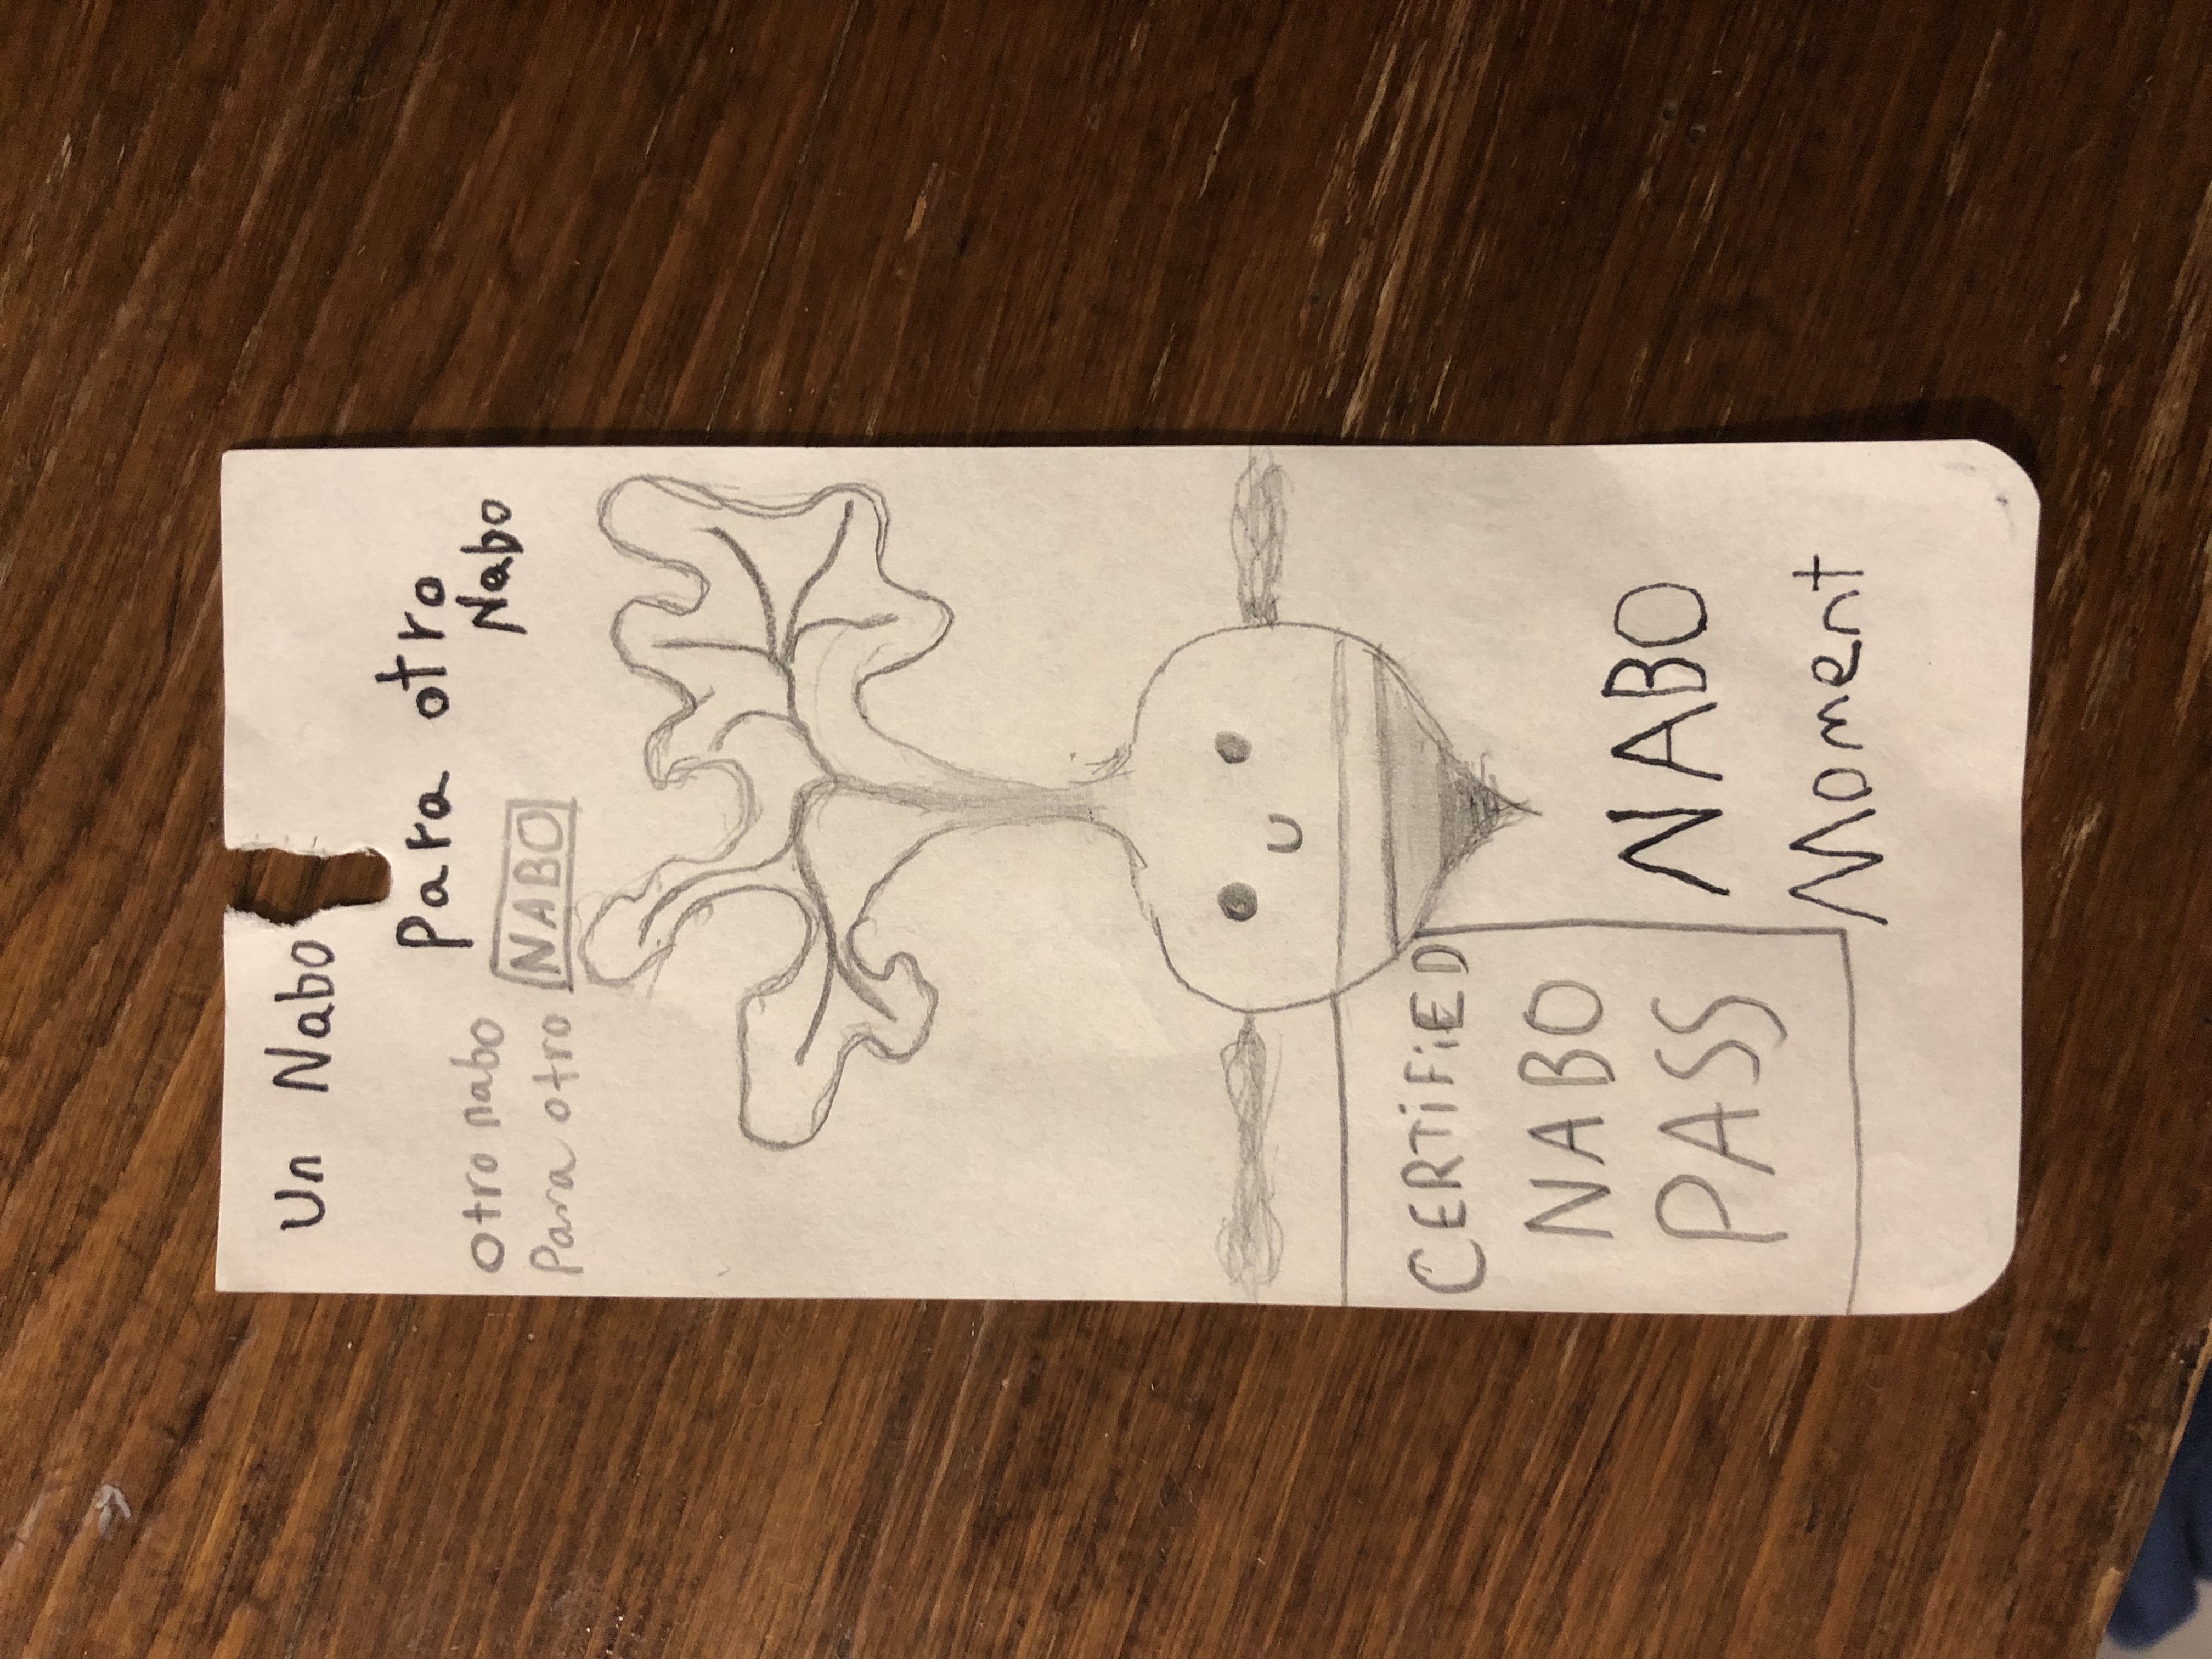 Un Nabo
Para otro
Nabo
otro nabo
Para otro NABO
CERTiFiED
NABO
PASS
NABO
Moment